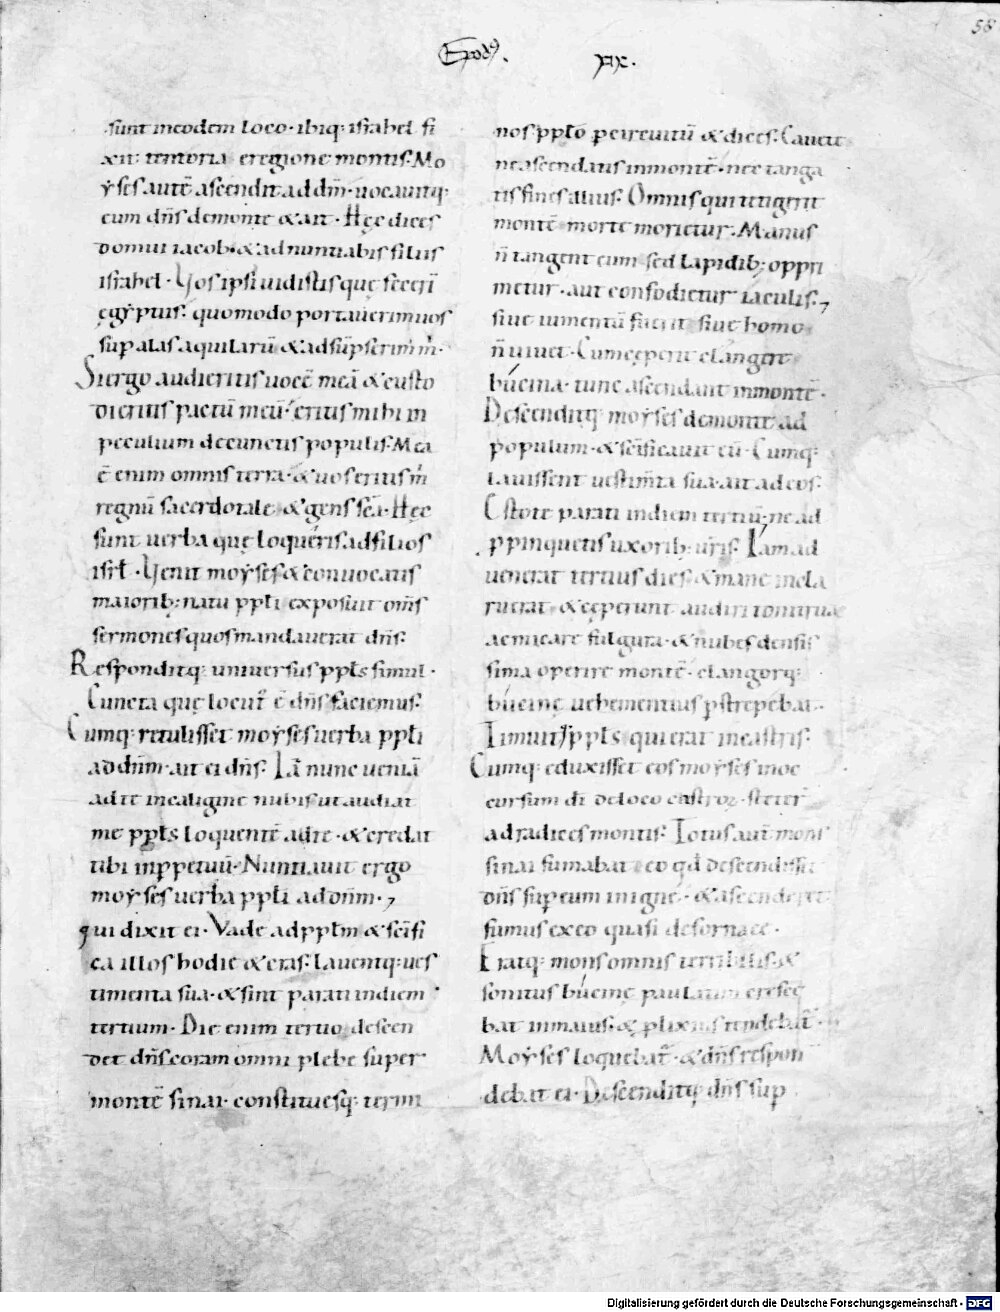 58
Exod⁹. xix.
sunt ineodem loco· ibiq; israhel fi
xit tentoria eregione montis. Mo
yses autē ascendit ad dm̄· uocauitq;
eum dn̄s demonte & ait· Hęc dices
domui iacob· & adnuntiabis filiis
israhel· Vos ipsi uidistis quę fecerī
ęgyptiis· quomodo portauerim uos
sup alas aquilarū & adsūpserim m̄·
Si ergo audieritis uocē meā & custo
dieritis pactū meū· eritis mihi in
peculium decunctis populis· Mea
ē enim omnis terra· & uos eritis m̄
regnū sacerdotale & gens sc̄a· Hęc
sunt uerba quę loqueris adfilios
isrł· Venit moyses & conuocatis
maiorib; natu ppłi exposuit om̄s
sermones quos mandauerat dn̄s·
Responditq; uniuersus ppłs simul·
Cuncta quę locut̄ ē dn̄s faciemus·
Cumq; retulisset moyses uerba ppłi
ad dn̄m· ait ei dn̄s· Iā nunc ueniā
ad te incaligine nubis ut audiat
me ppłs loquentē ad te· & credat
tibi inppetuū· Nuntiauit ergo
moyses uerba ppłi ad dn̄m·
qui dixit ei· Vade ad ppłm & sc̄ifi
ca illos hodie & cras· lauentq; ues
timenta sua· & sint parati indiem
tertium· Die enim tertio descen
det dn̄s coram omni plebe super
montē sinai· constituesq; termi
nos ppło p circuitū & dices· Cauete
ne ascendatis inmontē· nec tanga
tis fines illius· Omnis qui tetigerit
montē morte morietur· Manus
n̄ tangent eum sed lapidib; oppri
metur· aut confodietur iaculis·
siue iumentū fuerit siue homo
n̄ uiuet· Cum cęperit clangere
bucina· tunc ascendant inmontē·
Descenditq; moyses demonte ad
populum· & sc̄ificauit eū· Cumq;
lauissent uestim̄ta sua· ait ad eos·
Estote parati indiem tertiū· ne ad
ppinquetis uxorib; ur̄is· Iam ad
uenerat tertius dies & mane incla
ruerat· & cęperunt audiri tonitrua
ac micare fulgura· & nubes densis
sima operire montē· clangorq;
bucinę uehementius pstrepebat·
Timuit ppłs qui erat incastris·
Cumq; eduxisset eos moyses inoc
cursum dī deloco castroꝝ· steter̄
ad radices montis· Totus aut̄ mons
sinai fumabat eo qd̄ descendisset
dn̄s sup eum inigne· & ascenderet
fumus ex eo quasi defornace·
Eratq; mons omnis terribilis· &
sonitus bucinę paulatim cresce
bat inmaius· & plixius tendebat̄·
Moyses loquebat̄· & dn̄s respon
debat ei· Descenditq; dn̄s sup
Digitalisierung gefördert durch die Deutsche Forschungsgemeinschaft - DFG